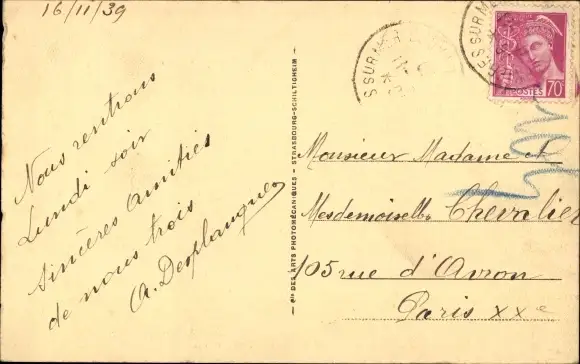 16/11/39
Nous rentrons
Lundi soir
sincères amitiés
de nous trois
A. Desplanques
— Cie DES ARTS PHOTOMÉCANIQUES - STRASBOURG-SCHILTIGHEIM —
S SUR MER
ES SUR M
POSTES 70c
Monsieur Madame et
Mesdemoiselles Chevalier
105 rue d'Avron
Paris XXe